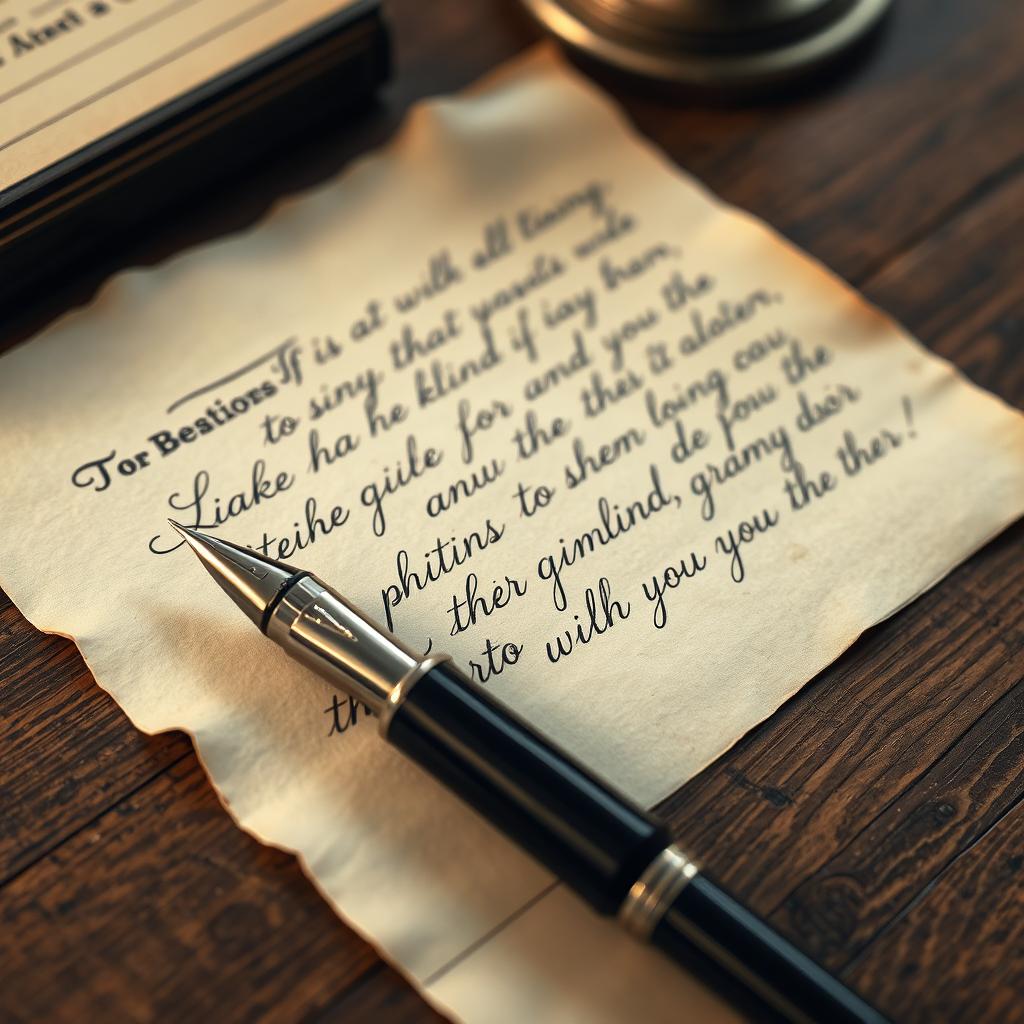 Abazt a
Tor Bestiors If is at wilh all tiwing
to siny that yasils wole
Liake ha he klind if iay ham,
teihe giile for and you the
anuu the ther it aloten,
phitins to shem loing cau,
ther gimlind, gramy dsor
de pow the
th rto wilh you you the ther!